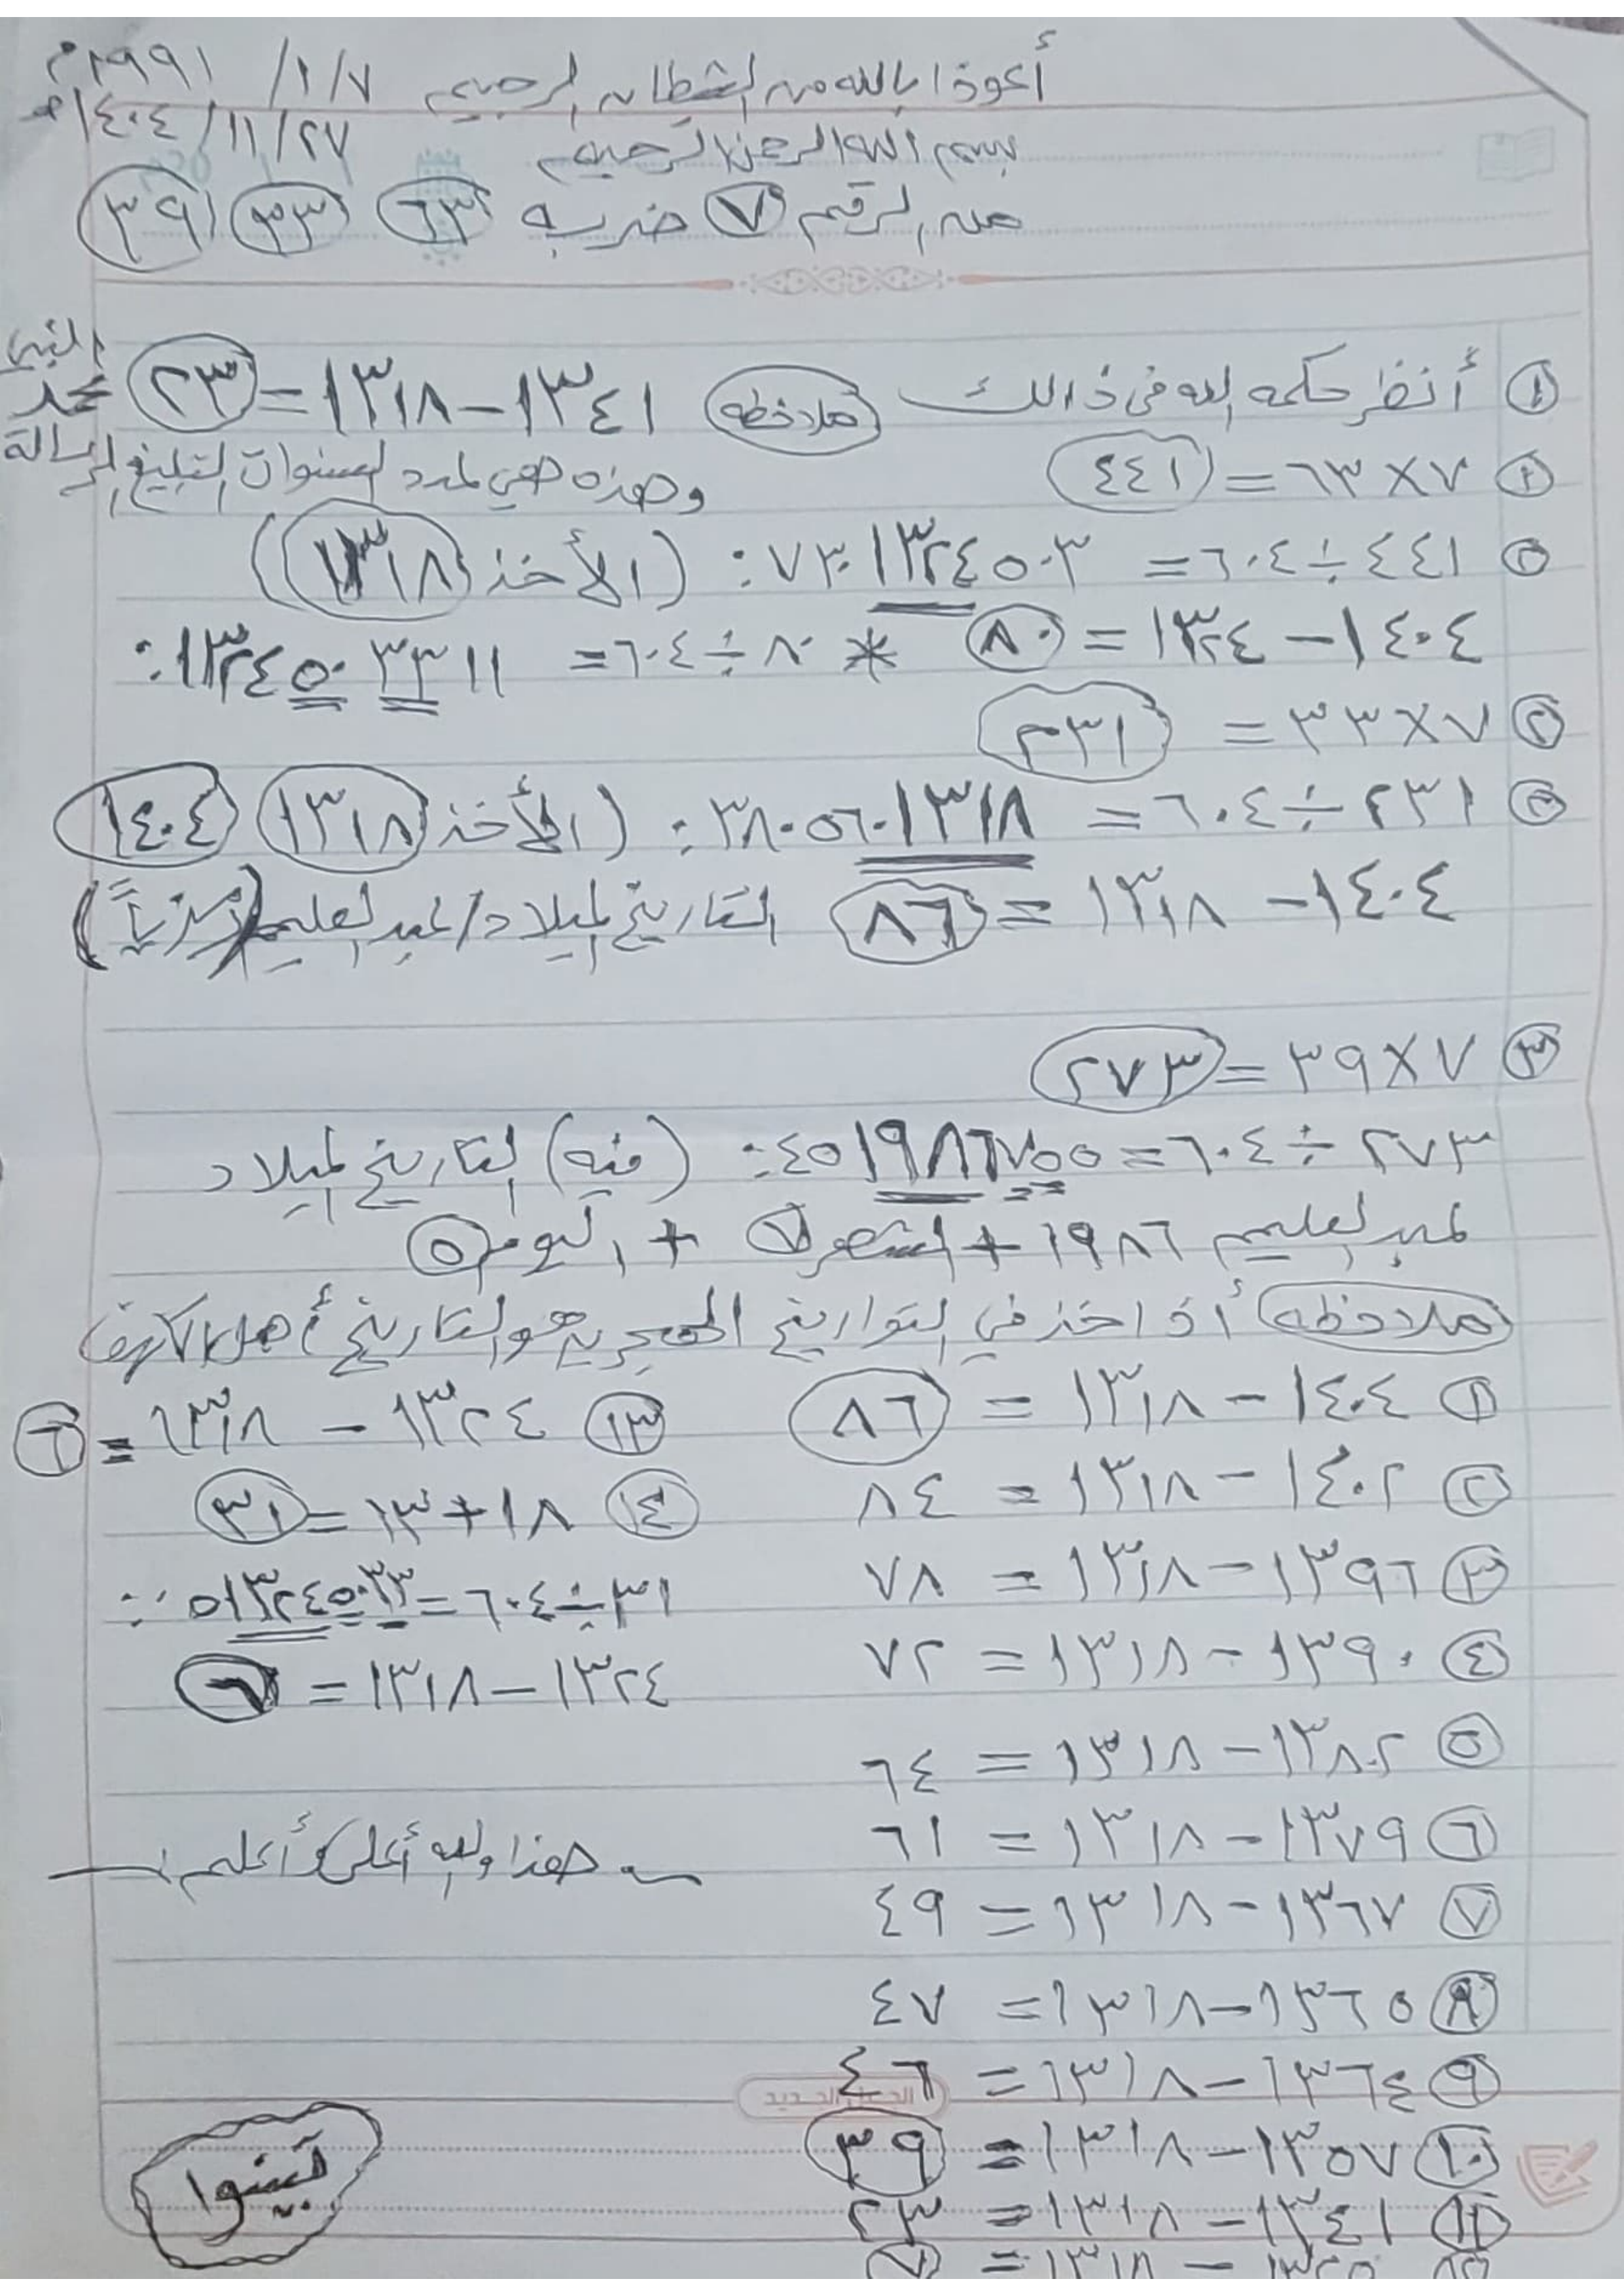 أعوذ بالله من الشيطان الرجيم ٧/١/١٩٩١م
بسم الله الرحمن الرحيم ٢٧/١١/١٤٠٤هـ
من الرقم ٧ ضربه ٦٣ ٣٣ ٣٩
١ أنظر حكمه الله في ذالك ملاحظه ١٣٤١ - ١٣١٨ = ٢٣ النبي محمد
٢ ٧ × ٦٣ = ٤٤١ وهذه هي لمدد السنوات التبليغ الرسالة
٤٤١ ÷ ٦٠٤ = ٧٣٠١٣٢٤٥٠٣٠: (الأخذ ١٣١٨)
١٤٠٤ - ١٣٢٤ = ٨٠ * ٨٠ ÷ ٦٠٤ = ١٣٢٤٥٠٣٣١١:
٢ ٧ × ٣٣ = ٢٣١
٢٣١ ÷ ٦٠٤ = ٣٨٠٥٦٠١٣١٨: (الأخذ ١٣١٨ ١٤٠٤
١٤٠٤ - ١٣١٨ = ٨٦ التاريخ لميلاد/لعبد لعليم
٣ ٧ × ٣٩ = ٢٧٣
٢٧٣ ÷ ٦٠٤ = ٤٥١٩٨٦٧٥٥: (فيه) التاريخ لميلاد
لعبد لعليم ١٩٨٦ + الشهر ٧ + اليوم ٥
ملاحظه أذ اخذ في التواريخ الهجريه هو التاريخ أهل الكهف
١ ١٤٠٤ - ١٣١٨ = ٨٦
٢ ١٤٠٢ - ١٣١٨ = ٨٤
٣ ١٣٩٦ - ١٣١٨ = ٧٨
٤ ١٣٩٠ - ١٣١٨ = ٧٢
٥ ١٣٨٢ - ١٣١٨ = ٦٤
٦ ١٣٧٩ - ١٣١٨ = ٦١
٧ ١٣٦٧ - ١٣١٨ = ٤٩
٨ ١٣٦٥ - ١٣١٨ = ٤٧
٩ ١٣٦٤ - ١٣١٨ = ٤٦
١٠ ١٣٥٧ - ١٣١٨ = ٣٩
١١ ١٣٤١ - ١٣١٨ = ٢٣
١٣١٨ = ٧
١٣ ١٣٢٤ - ١٣١٨ = ٦
١٤ ١٨ + ١٣ = ٣١
٣١ ÷ ٦٠٤ = ٥١٣٢٤٥٠٣٣:
١٣٢٤ - ١٣١٨ = ٦
هذا والله أعلى وأعلم
تبينوا